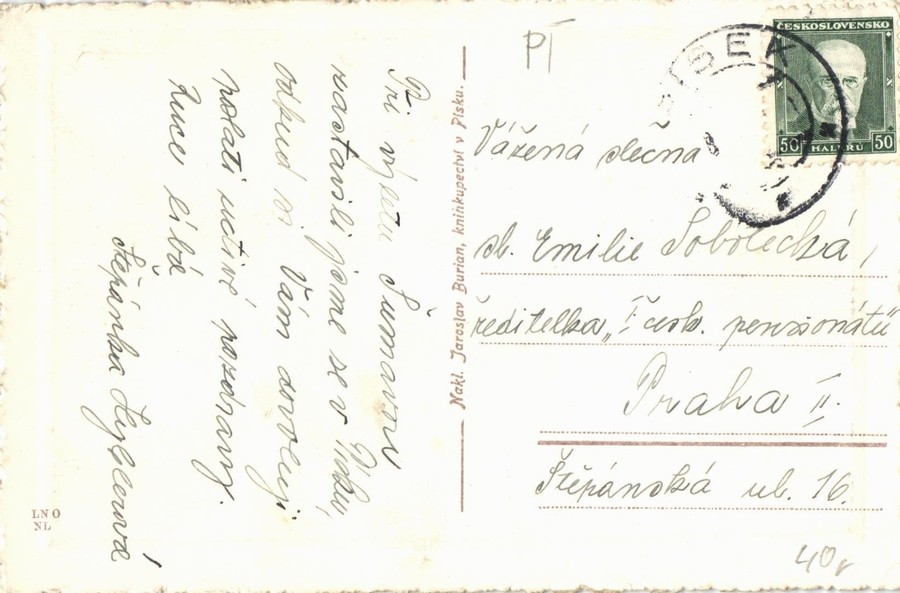 Při výletu Šumavou
zastavili jsme se v Písku,
odkud si Vám dovoluji
poslati uctivé pozdravy.
Ruce líbá
Štěpánka Hyblerová
LNO
NL
Nakl. Jaroslav Burian, knihkupectví v Písku.
PÍ
ČESKOSLOVENSKO
50 HALÉŘŮ 50
PÍSEK
Vážená slečna
sl. Emilie Sobolecká,
ředitelka „I česk. penzionátu"
Praha II.
Štěpánská ul. 16.
40